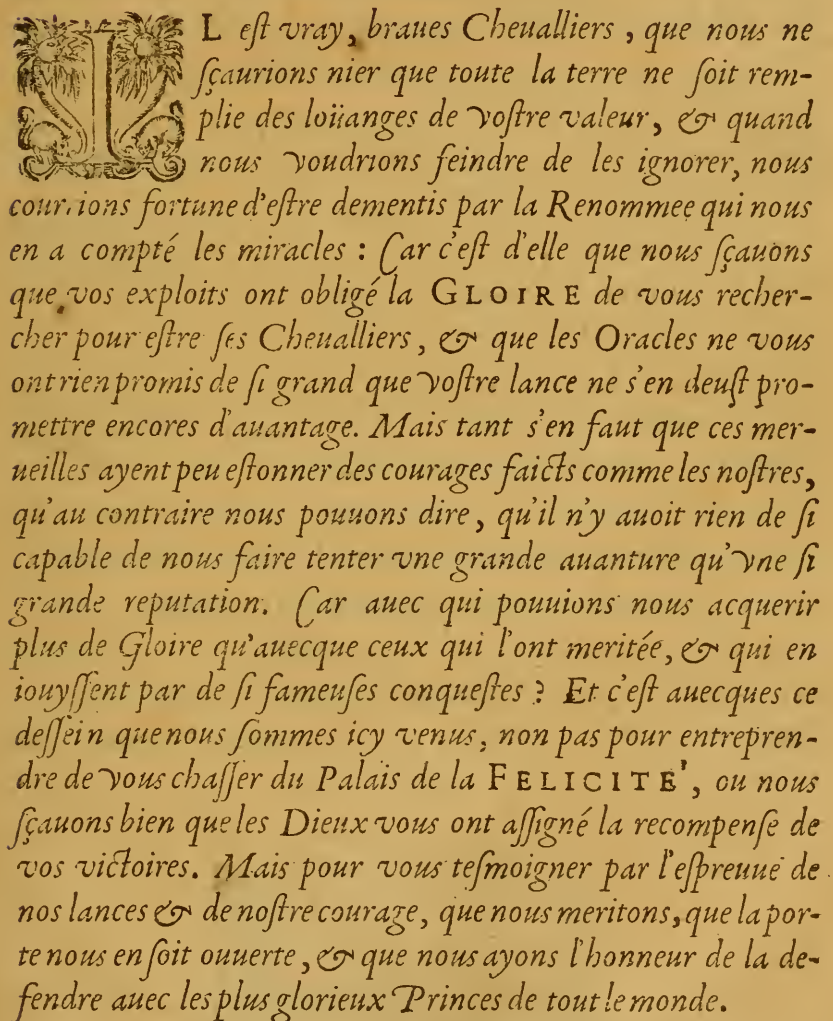 IL eſt vray, braues Cheualliers, que nous ne
ſçaurions nier que toute la terre ne ſoit rem-
plie des loüanges de voſtre valeur, & quand
nous voudrions feindre de les ignorer, nous
courions fortune d'eſtre dementis par la Renommee qui nous
en a compté les miracles : Car c'eſt d'elle que nous ſçauons
que vos exploits ont obligé la GLOIRE de vous recher-
cher pour eſtre ſes Cheualliers, & que les Oracles ne vous
ont rien promis de ſi grand que voſtre lance ne s'en deuſt pro-
mettre encores d'auantage. Mais tant s'en faut que ces mer-
ueilles ayent peu eſtonner des courages faicts comme les noſtres,
qu'au contraire nous pouuons dire, qu'il n'y auoit rien de ſi
capable de nous faire tenter vne grande auanture qu'vne ſi
grande reputation. Car auec qui pouuions nous acquerir
plus de Gloire qu'auecque ceux qui l'ont meritée, & qui en
iouyſſent par de ſi fameuſes conqueſtes ? Et c'eſt auecques ce
deſſein que nous ſommes icy venus, non pas pour entrepren-
dre de vous chaſſer du Palais de la FELICITE', ou nous
ſçauons bien que les Dieux vous ont aſſigné la recompenſe de
vos victoires. Mais pour vous teſmoigner par l'eſpreuue de
nos lances & de noſtre courage, que nous meritons, que la por-
te nous en ſoit ouuerte, & que nous ayons l'honneur de la de-
fendre auec les plus glorieux Princes de tout le monde.